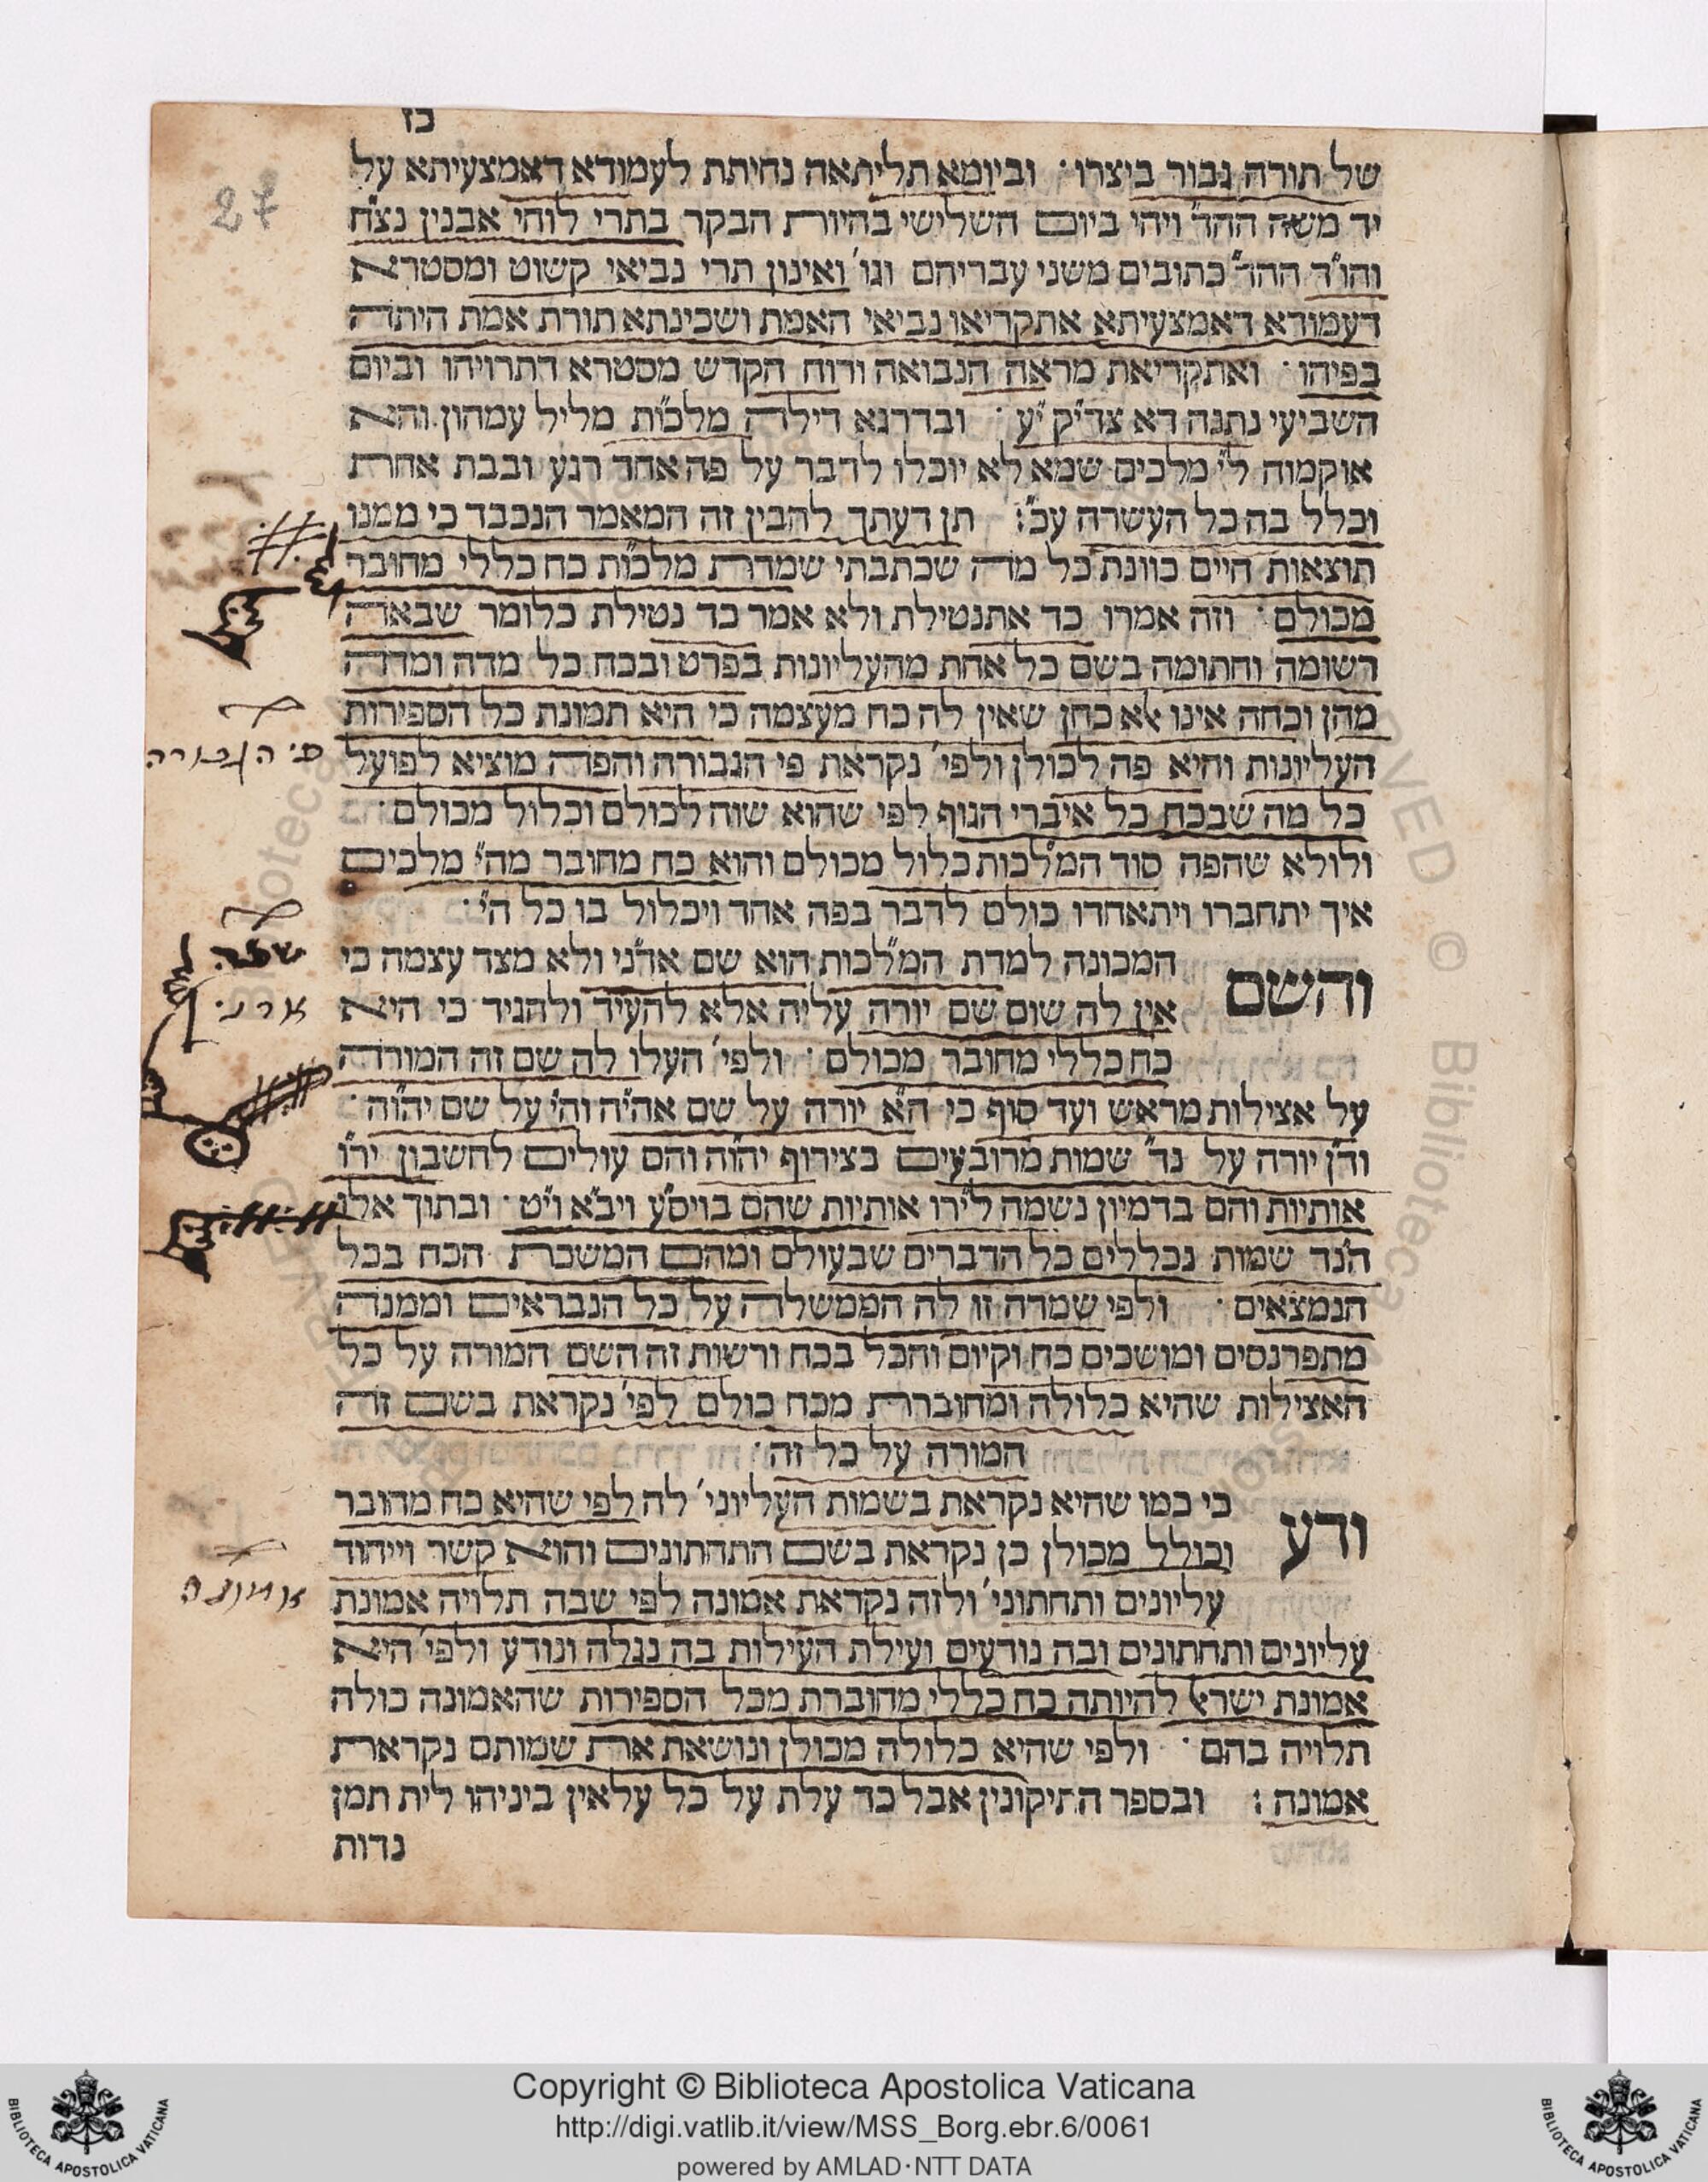 כז
27
של תורה גבור ביצרו · וביומא תליתאה נחיתת לעמודא דאמצעיתא על
יד משה ההד ויהי ביום השלישי בהיות הבקר בתרי לוחי אבנין נצ"ח
והו"ד ההד כתובים משני עבריהם וגו' ואינון תרי נביאי קשוט ומסטרא
דעמודא דאמצעיתא אתקריאו נביאי האמת ושכינתא תורת אמת היתה
בפיהו · ואתקריאת מראה הנבואה ורוח הקדש מסטרא דתרויהו וביום
השביעי נתנה דא צדי"ק י"ע · ובדרגא דילה מלכ"ות מליל עמהון והא
אוקמוה לי' מלכים שמא לא יוכלו לדבר על פה אחד רגע ובבת אחת
וכלל בה כל העשרה עכ"ל תן דעתך להבין זה המאמר הנכבד כי ממנו
תוצאות חיים כוונת כל מה שכתבתי שמדת מלכ"ות כח כללי מחובר
מכולם · וזה אמרו כד אתנטילת ולא אמר כד נטילת כלומר שבאה
רשומה וחתומה בשם כל אחת מהעליונות בפרט ובכח כל מדה ומדה
מהן וכחה אינו אלא כחן שאין לה כח מעצמה כי היא תמונת כל הספירות
פי הגבורה
העליונות והיא פה לכולן ולפי' נקראת פי הגבורה והפה מוציא לפועל
כל מה שבכח כל איברי הגוף לפי שהוא שוה לכולם וכלול מכולם ·
ולולא שהפה סוד המלכות כלול מכולם והוא כח מחובר מהי' מלכים
איך יתחברו ויתאחדו כולם לדבר בפה אחד ויכלול בו כל הי' ·
והשם המכונה למדת המ"לכות הוא שם אד"ני ולא מצד עצמה כי
אין לה שום שם יורה עליה אלא להעיד ולהגיד כי היא
כח כללי מחובר מכולם · ולפי' העלו לה שם זה המורה
על אצילות מראש ועד סוף כי ה"א יורה על שם אהי"ה והי' על שם יהו"ה ·
וד"ן יורה על נד" שמות מרובעים בצירוף יהו"ה והם עולים לחשבון יר"ו
אותיות והם בדמיון נשמה לי"רו אותיות שהם בויס"ע ויב"א וי"ט · ובתוך אלו
הנד שמות נכללים כל הדברים שבעולם ומהם המשכת הכח בכל
הנמצאים · ולפי שמדה זו לה הממשלה על כל הנבראים וממנה
מתפרנסים ומושכים כח וקיום והכל בכח ורשות זה השם המורה על כל
האצילות שהיא כלולה ומחוברת מכח כולם לפי' נקראת בשם זה
המורה על כל זה ·
ודע כי כמו שהיא נקראת בשמות העליוני' לה לפי שהיא כח מחובר
וכולל מכולן כן נקראת בשם התחתונים והוא קשר וייחוד
אמונה
עליונים ותחתוני' ולזה נקראת אמונה לפי שבה תלויה אמונת
עליונים ותחתונים ובה נודעים ועילת העילות בה נגלה ונודע ולפי' היא
אמונת ישראל להיותה כח כללי מחוברת מכל הספירות שהאמונה כולה
תלויה בהם · ולפי שהיא כלולה מכולן ונושאת את שמותם נקראת
אמונה : ובספר התיקונין אבל כד עלת על כל עלאין ביניהו לית תמן
נדות
Copyright © Biblioteca Apostolica Vaticana
http://digi.vatlib.it/view/MSS_Borg.ebr.6/0061
powered by AMLAD·NTT DATA
BIBLIOTECA APOSTOLICA VATICANA
BIBLIOTECA APOSTOLICA VATICANA